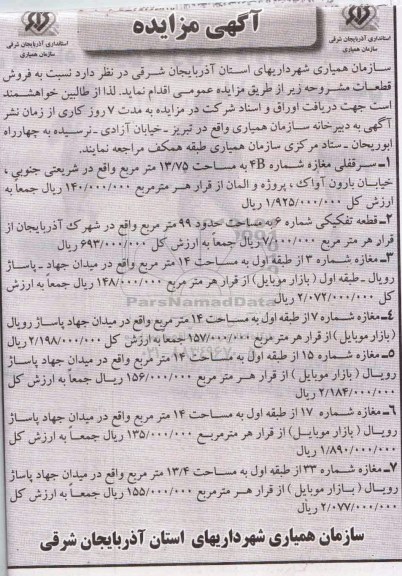 آگهی مزایده
استانداری آذربایجان شرقی
سازمان همیاری
استانداری آذربایجان شرقی
سازمان همیاری
سازمان همیاری شهرداریهای استان آذربایجان شرقی در نظر دارد نسبت به فروش
قطعات مشروحه زیر از طریق مزایده عمومی اقدام نماید. لذا از طالبین خواهشمند
است جهت دریافت اوراق و اسناد شرکت در مزایده به مدت ۷ روز کاری از زمان نشر
آگهی به دبیرخانه سازمان همیاری واقع در تبریز ـ خیابان آزادی ـ نرسیده به چهارراه
ابوریحان ـ ستاد مرکزی سازمان همیاری طبقه همکف مراجعه نمایند.
۱ـ سرقفلی مغازه شماره ۴B به مساحت ۱۳/۷۵ متر مربع واقع در شریعتی جنوبی ،
خیابان بارون آواک ، پروژه و المان از قرار هر مترمربع ۱۴۰/۰۰۰/۰۰۰ ریال جمعا به
ارزش کل ۱/۹۲۵/۰۰۰/۰۰۰ ریال
۲ـ قطعه تفکیکی شماره ۶ به مساحت حدود ۹۹ متر مربع واقع در شهرک آذربایجان از
قرار هر متر مربع ۷/۰۰۰/۰۰۰ ریال جمعا به ارزش کل ۶۹۳/۰۰۰/۰۰۰ ریال
۳ـ مغازه شماره ۳ از طبقه اول به مساحت ۱۴ متر مربع واقع در میدان جهاد ـ پاساژ
رویال ـ طبقه اول ( بازار موبایل ) از قرار هر متر مربع ۱۴۸/۰۰۰/۰۰۰ ریال جمعاً به ارزش
کل ۲/۰۷۲/۰۰۰/۰۰۰ ریال
ParsNamadData
۴ـ مغازه شماره ۷ از طبقه اول به مساحت ۱۴ متر مربع واقع در میدان جهاد پاساژ رویال
( بازار موبایل ) از قرار هر متر مربع ۱۵۷/۰۰۰/۰۰۰ جمعا به ارزش کل ۲/۱۹۸/۰۰۰/۰۰۰ ریال
۵ـ مغازه شماره ۱۵ از طبقه اول به مساحت ۱۴ متر مربع واقع در میدان جهاد پاساژ
رویال ( بازار موبایل ) از قرار هر متر مربع ۱۵۶/۰۰۰/۰۰۰ ریال جمعاً به ارزش کل
۲/۱۸۴/۰۰۰/۰۰۰ ریال
۶ـ مغازه شماره ۱۷ از طبقه اول به مساحت ۱۴ متر مربع واقع در میدان جهاد پاساژ
رویال ( بازار موبایل ) از قرار هر مترمربع ۱۳۵/۰۰۰/۰۰۰ ریال جمعاً به ارزش کل
۱/۸۹۰/۰۰۰/۰۰۰ ریال
۷ـ مغازه شماره ۳۳ از طبقه اول به مساحت ۱۳/۴ متر مربع واقع در میدان جهاد پاساژ
رویال ( بازار موبایل ) از قرار هر مترمربع ۱۵۵/۰۰۰/۰۰۰ ریال جمعاً به ارزش کل
۲/۰۷۷/۰۰۰/۰۰۰ ریال
سازمان همیاری شهرداریهای استان آذربایجان شرقی